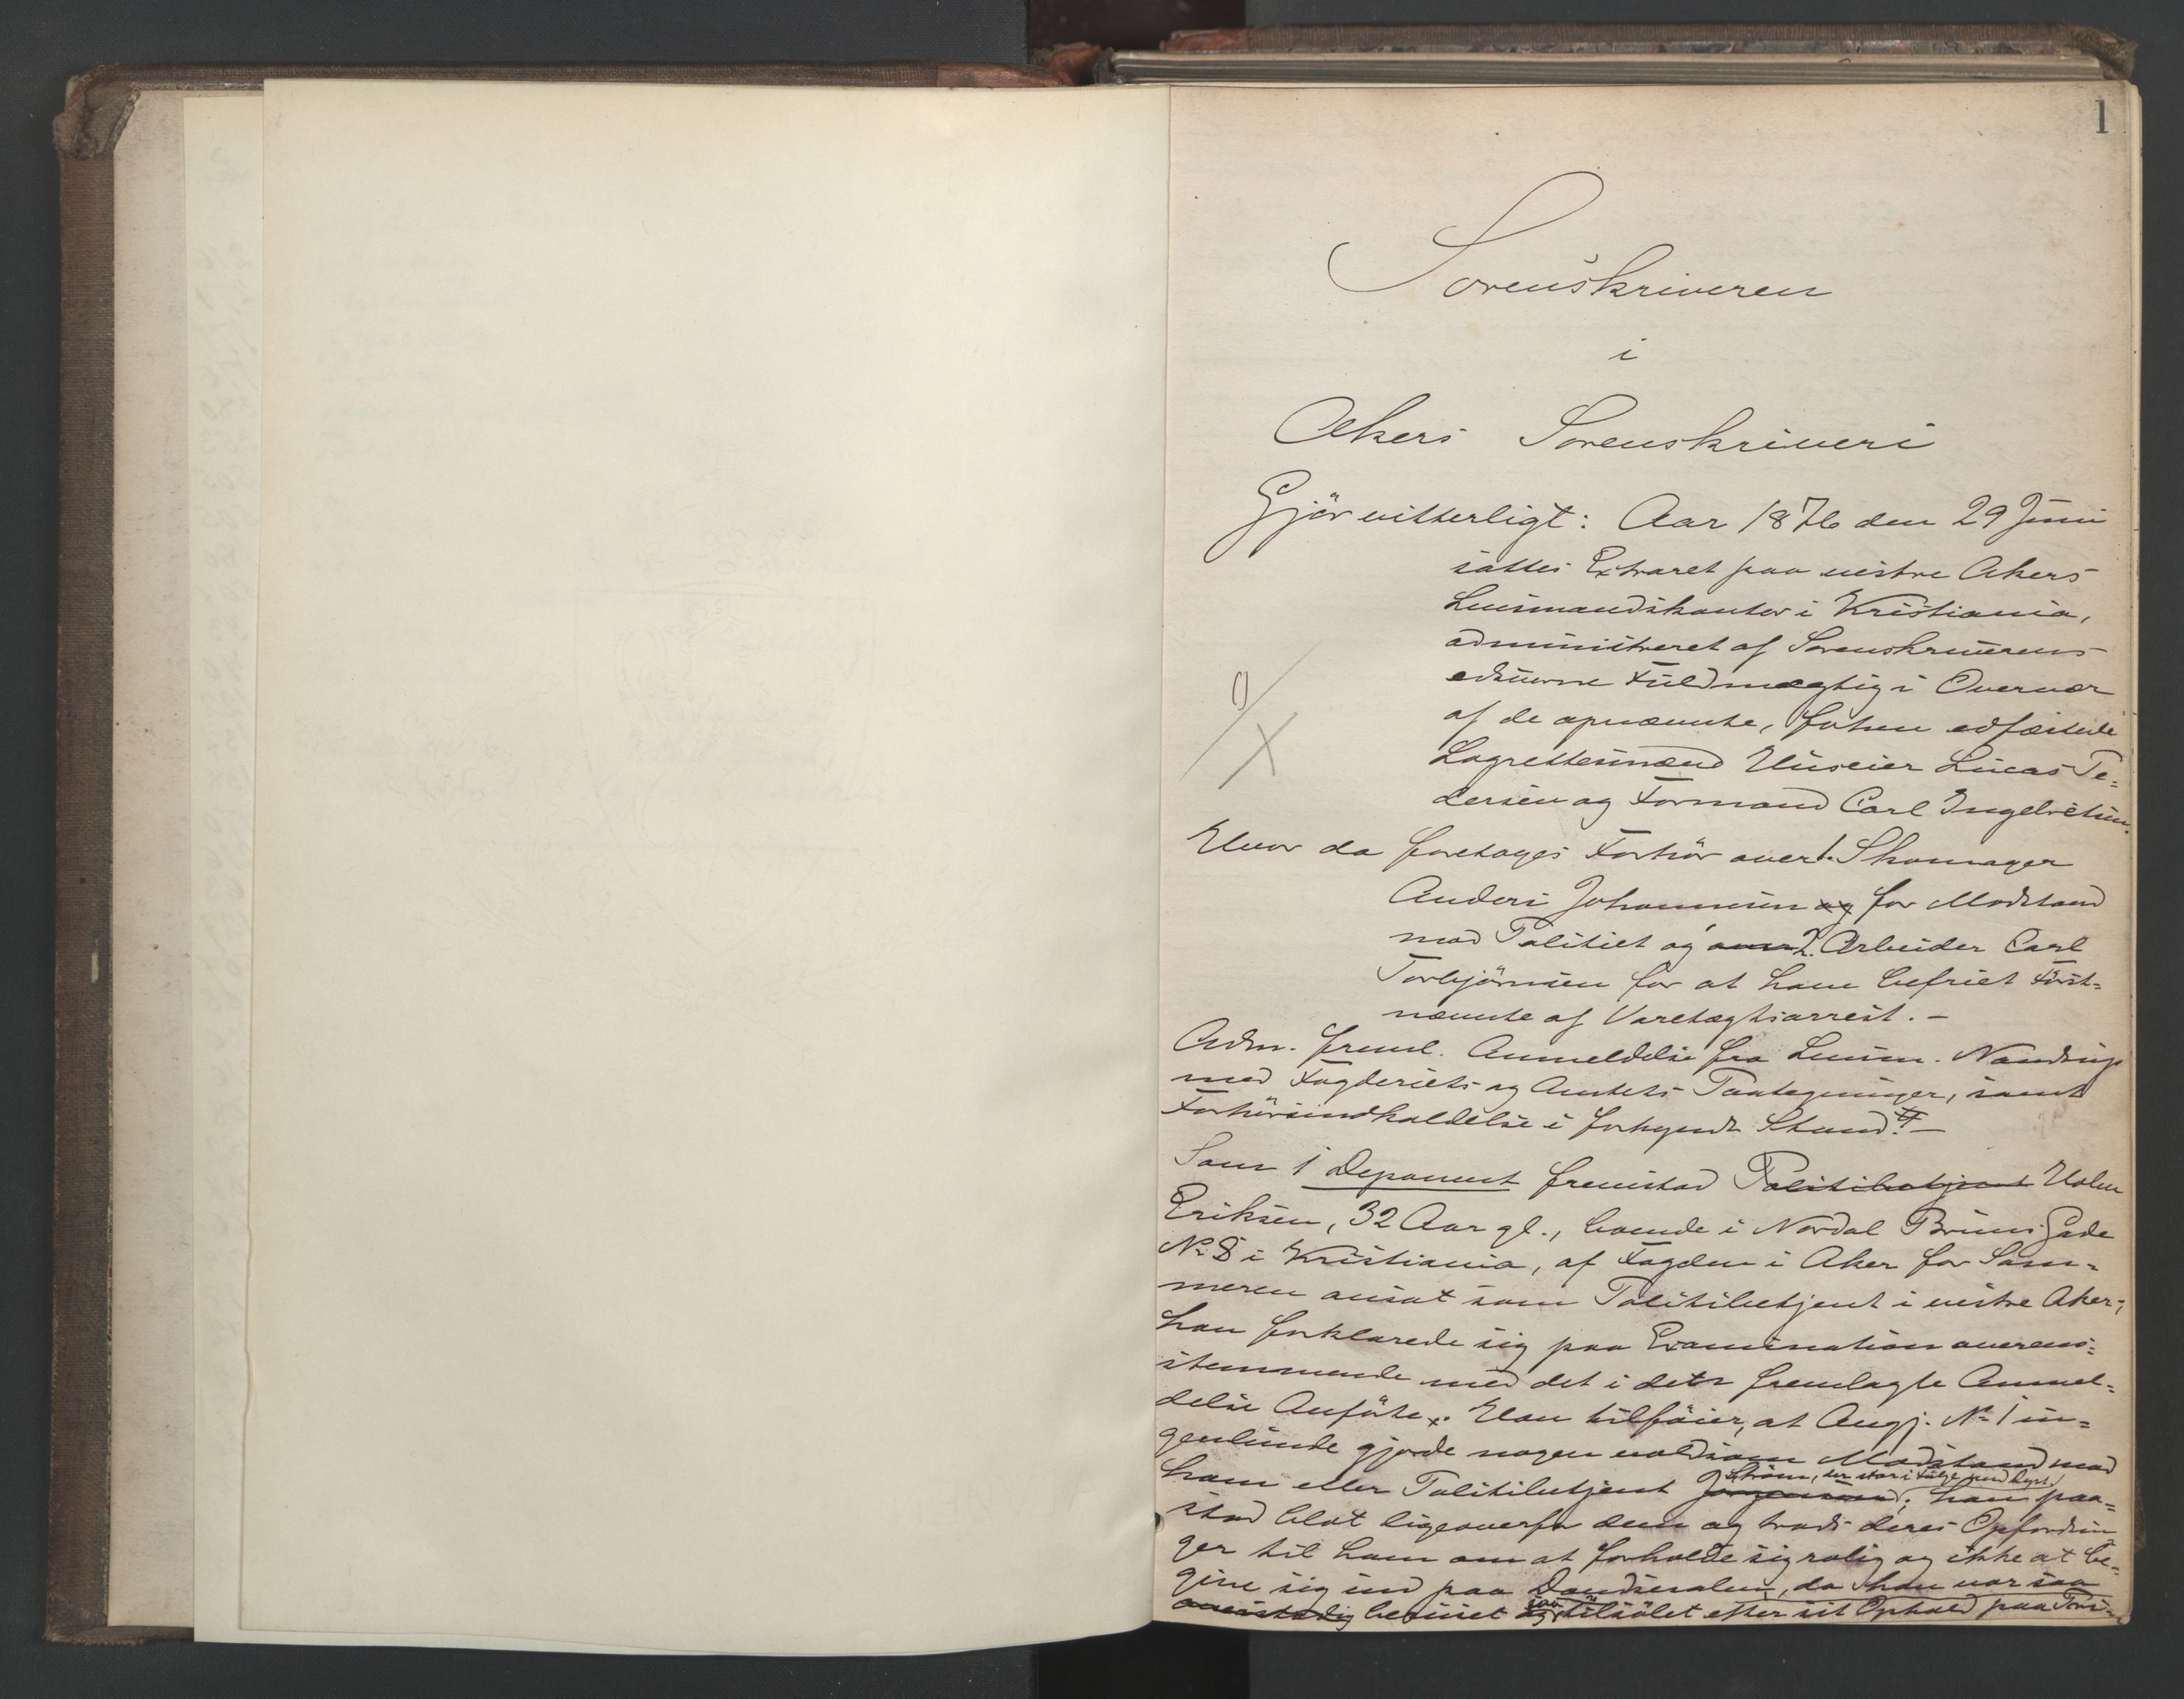 1
Sorenskriveren
i
Akers Sorenskriveri
Gjör vitterligt: Aar 1876 den 29 Juni
sattes Extraret paa vestre Akers
Lensmandskontor i Kristiania,
administreret af Sorenskriverens
edsvorne Fuldmægtig i Overvær
af de opnævnte, forhen edfæstede
Lagrettesmænd Huseier Lucas Pe=
dersen og Formand Carl Ingebretsen.
Hvor da foretoges Forhör over 1. Skomager
Anders Johannesen og for Modstand
mod Politiet og over 2. Arbeider Carl
Torbjörnsen for at have befriet Först=
nævnte af Varetægtsarrest. –
Adm. freml. Anmeldelse fra Lensm.
med Fogderiets og Amtets Paategninger, samt
Forhörsindkaldelse i forkyndt Stand. –
Som 1 Deponent fremstod Politibetjent
Eriksen, 32 Aar gl., boende i Nordal Bruns Gade
No 8 i Kristiania, af Fogden i Aker for Som=
meren ansat som Politibetjent i vestre Aker;
han forklarede sig paa Examination overens=
stemmende med det i den fremlagte Anmel=
delse Anförte. Han tilföier, at Angj. No 1 in=
genlunde gjorde nogen voldsom Modstand mod
Ström, der var i Fölge med Dept.
ham eller Politibetjent Jörgensen; han paa=
stod blot ligeoverfor dem og trods deres Opfordrin
ger til ham om at forholde sig rolig og ikke at be=
give sig ind paa Dandsesalen, da han var saa
beruset og saa tilsölet efter sit Ophold paa